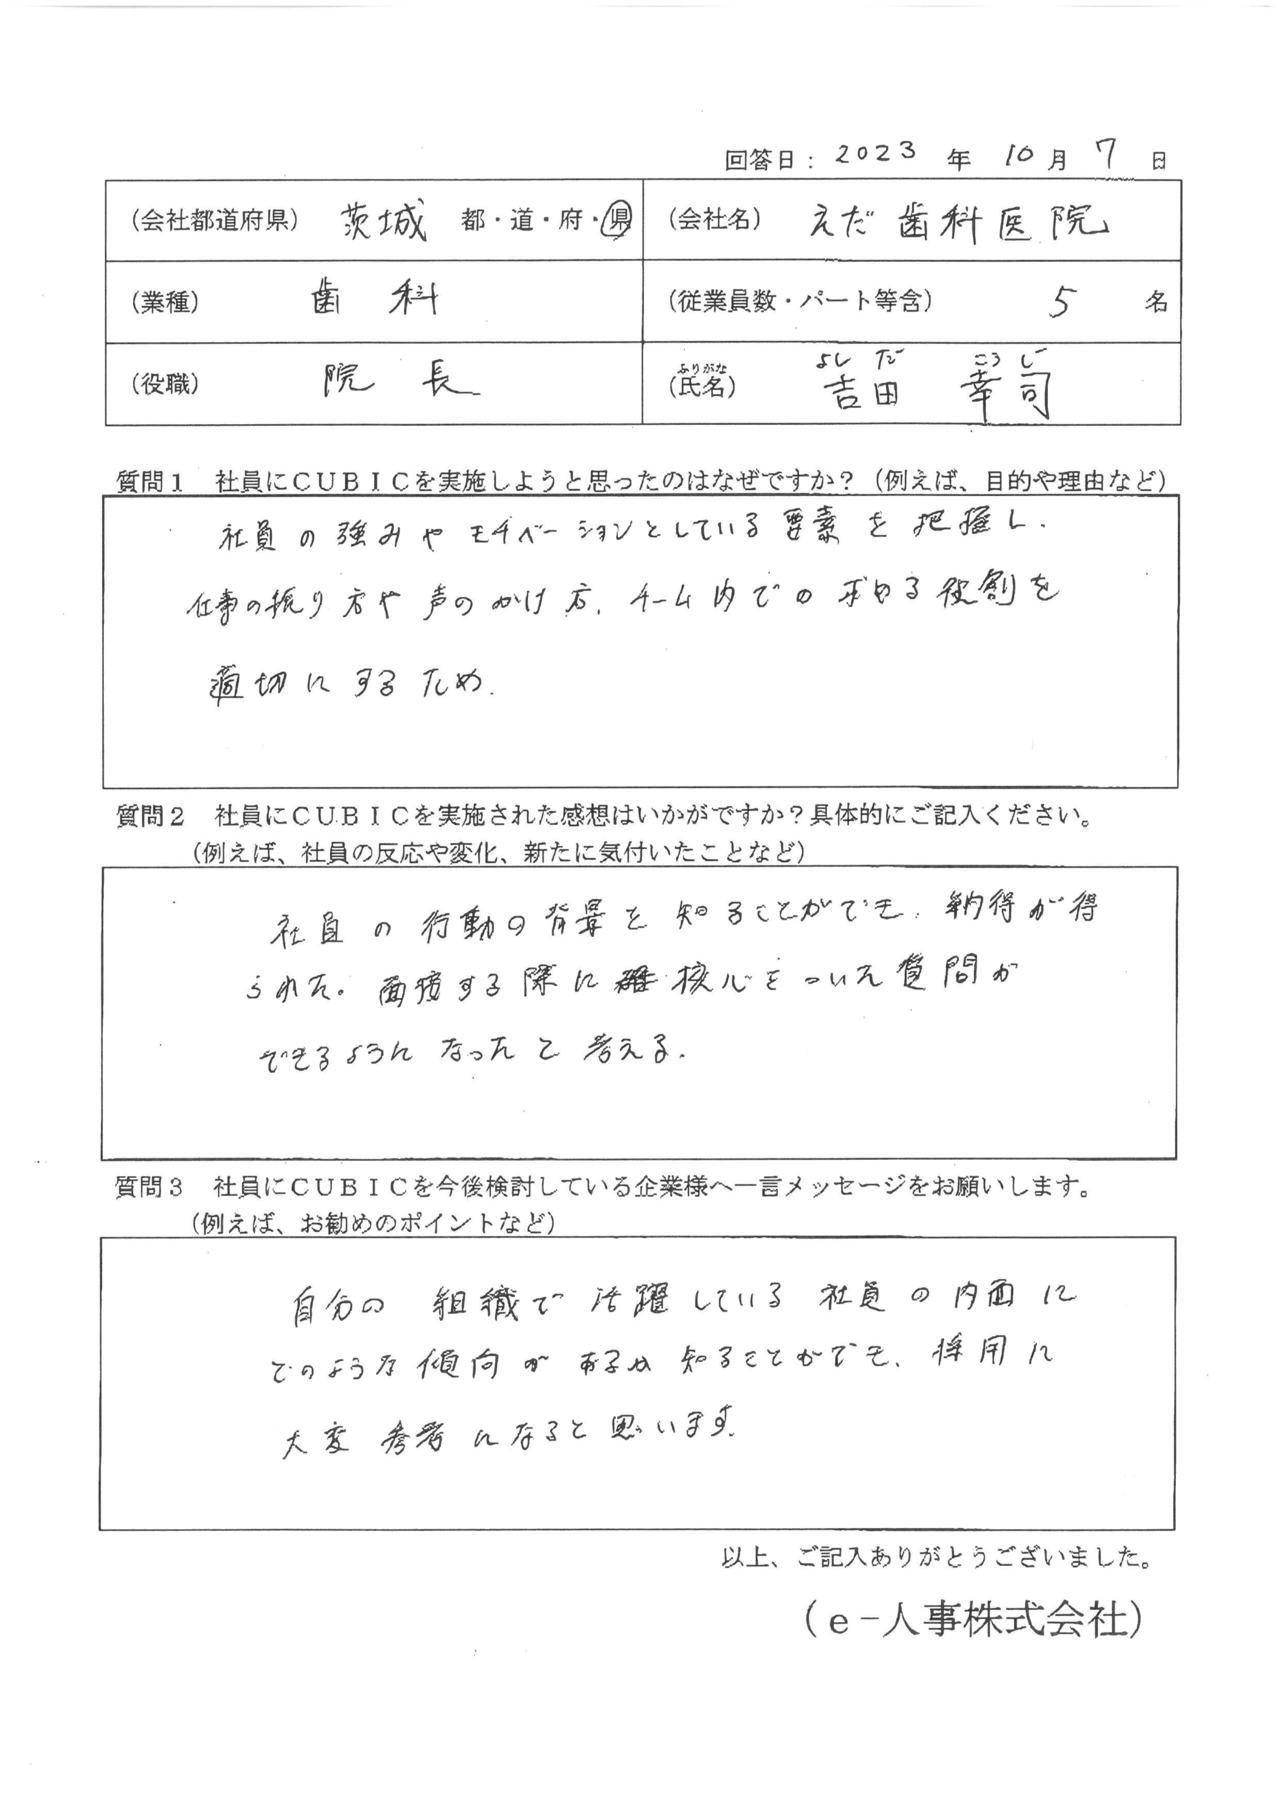 回答日：2023 年 10 月 7 日
（会社都道府県） 茨城 都・道・府・県
（会社名） えだ歯科医院
（業種） 歯科
（従業員数・パート等含） 5 名
（役職） 院長
ふりがな よしだ こうじ
（氏名） 吉田 幸司
質問１ 社員にＣＵＢＩＣを実施しようと思ったのはなぜですか？（例えば、目的や理由など）
社員の強みやモチベーションとしている要素を把握し、
仕事の振り方や声のかけ方、チーム内での求める役割を
適切にするため。
質問２ 社員にＣＵＢＩＣを実施された感想はいかがですか？具体的にご記入ください。
（例えば、社員の反応や変化、新たに気付いたことなど）
社員の行動の背景を知ることができ、納得が得
られた。面接する際に核心をついた質問が
できるようになったと考える。
質問３ 社員にＣＵＢＩＣを今後検討している企業様へ一言メッセージをお願いします。
（例えば、お勧めのポイントなど）
自分の組織で活躍している社員の内面に
どのような傾向があるか知ることができ、採用に
大変参考になると思います。
以上、ご記入ありがとうございました。
（ｅ－人事株式会社）